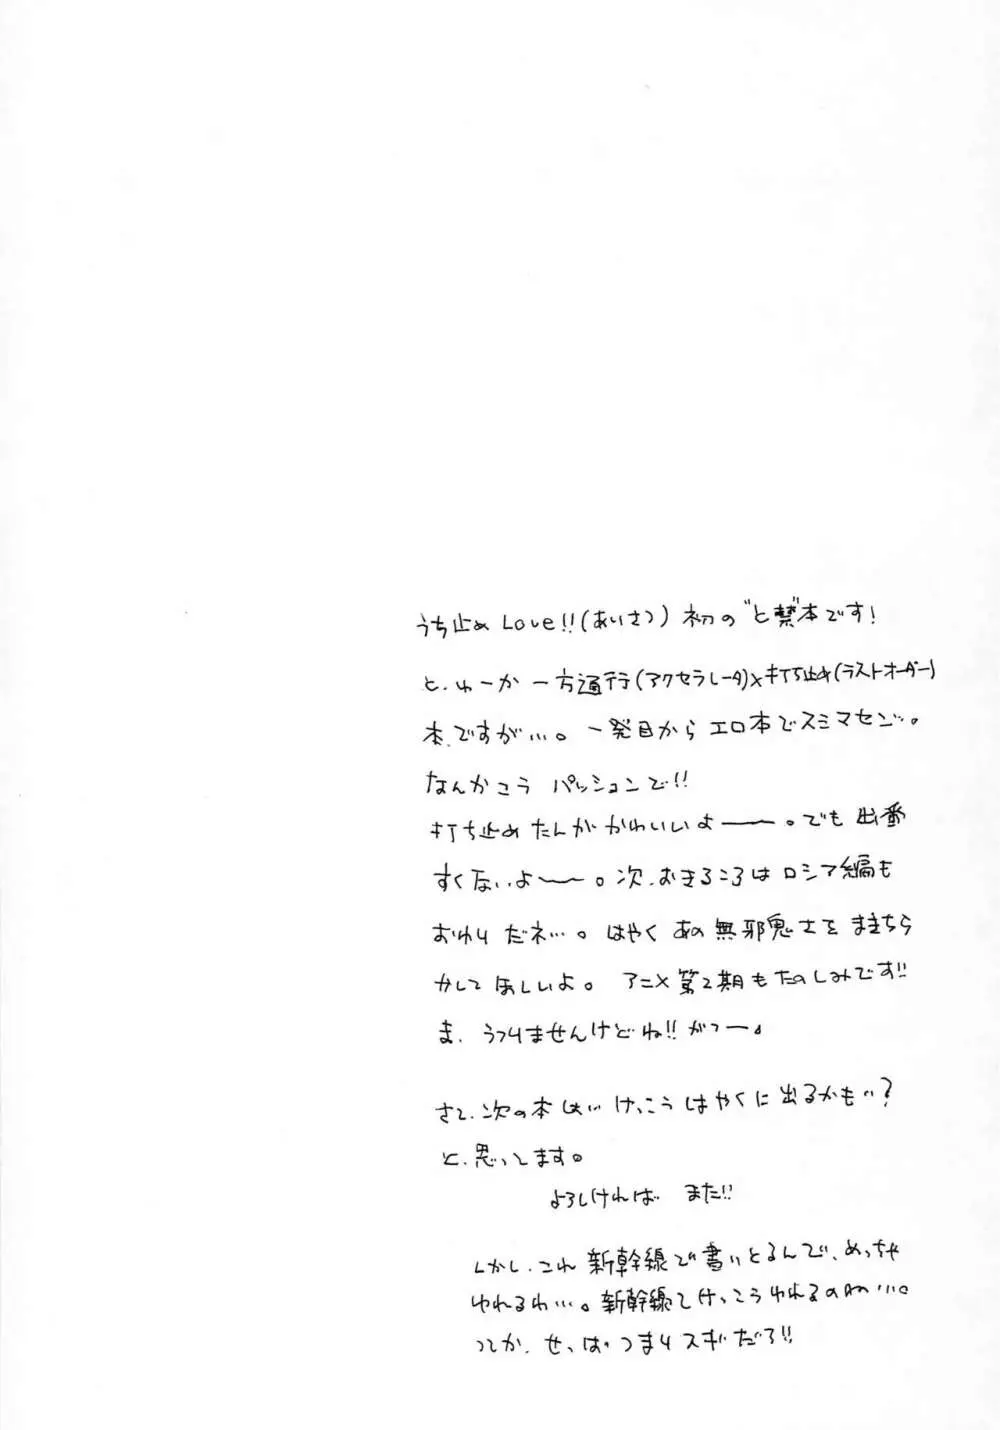 うち止め Love!!(あいさつ) 初の"と禁"本です!
と、ゆーか 一方通行(アクセラレータ)×打ち止め(ラストオーダー)
本、ですが…。一発目から エロ本でスミマセン…。
なんかこう パッションで!!
打ち止めたんが かわいいよ――。でも 出番
すくないよ――。次、おきるころは ロシア編も
おわりだネ…。はやく あの 無邪鬼さを まきちら
かして ほしいよ。 アニメ 第2期も たのしみです!!
ま、うつりませんけどね!! がつー。
さて、次の本は、けっこう はやくに 出るかも…?
と、思ってます。
よろしければ また!!
しかし、これ 新幹線で 書いとるんで、めっちゃ
ゆれるわ…。新幹線て けっこう ゆれるのね…。
ってか、せっぱつまりスギだろ!!